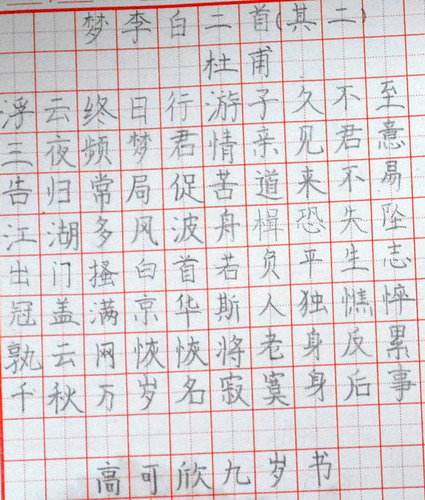 梦李白二首(其二)
杜甫
浮云终日行游子久不至
三夜频梦君情亲见君意
告归常局促苦道来不易
江湖多风波舟楫恐失坠
出门搔白首若负平生志
冠盖满京华斯人独憔悴
孰云网恢恢将老身反累
千秋万岁名寂寞身后事
高可欣九岁书